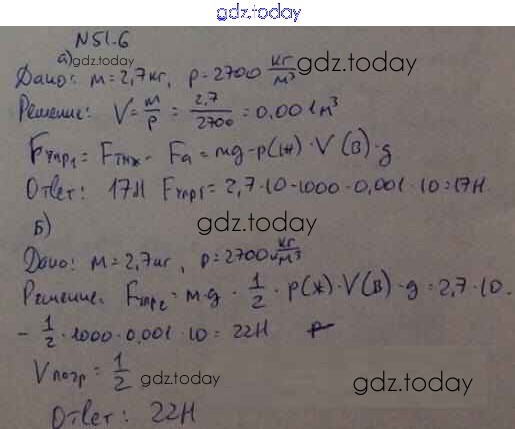 gdz.today
N51.6
а)
gdz.today
Дано: m=2,7кг, p=2700 кг/м³
gdz.today
Решение: V=m/p = 2,7/2700 = 0,001м³
Fупр₁ = Fтяж - Fа = mg-p(ж)·V(в)·g
Ответ: 17Н Fупр₁ = 2,7·10-1000·0,001·10=17Н.
gdz.today
Б)
Дано: m=2,7кг, p=2700 кг/м³
Решение. Fупр₂ = m·g · 1/2 · p(ж)·V(в)·g = 2,7·10.
- 1/2 ·1000·0,001·10 = 22Н
Vпогр = 1/2
gdz.today
gdz.today
Ответ: 22Н